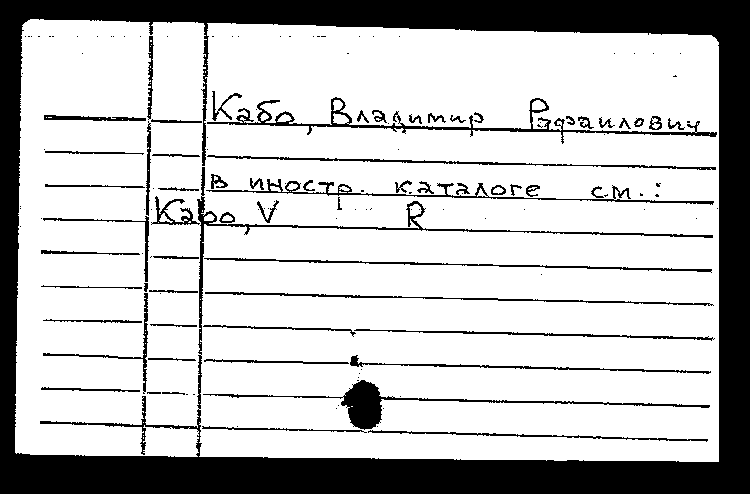 Кабо, Владимир Рафаилович
в иностр. каталоге см.:
Kabo, V R